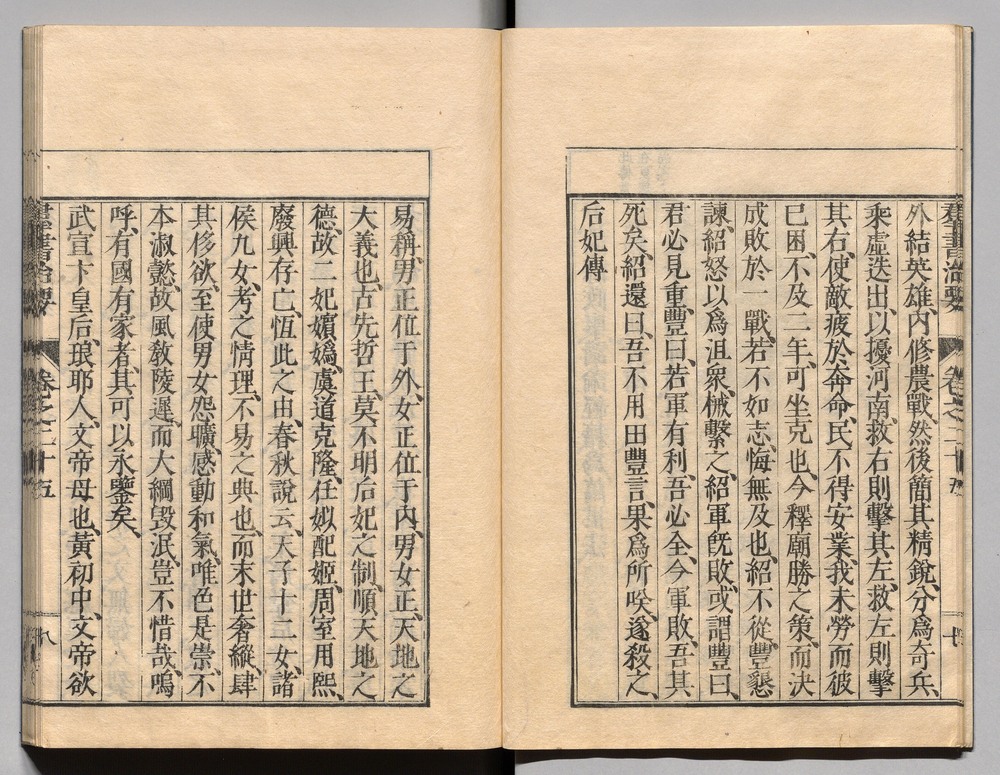 羣書治要 卷之二十五 七
外結英雄、内修農戰、然後簡其精銳、分爲奇兵、
乘虛迭出、以擾河南、救右則擊其左、救左則擊
其右、使敵疲於奔命、民不得安業、我未勞而彼
已困、不及二年、可坐克也、今釋廟勝之策、而決
成敗於一戰、若不如志、悔無及也、紹不從、豐懇
諫、紹怒以爲沮衆、械繫之、紹軍旣敗、或謂豐曰、
君必見重、豐曰、若軍有利、吾必全、今軍敗、吾其
死矣、紹還曰、吾不用田豐言、果爲所咲、遂殺之、
后妃傳
易稱、男正位于外、女正位于内、男女正、天地之
大義也、古先哲王、莫不明后妃之制、順天地之
德、故二妃嬪嬀、虞道克隆、任姒配姬、周室用熙、
廢興存亡、恆此之由、春秋說云、天子十二女、諸
侯九女、考之情理、不易之典也、而末世奢縱、肆
其侈欲、至使男女怨曠、感動和氣、唯色是崇、不
本淑懿、故風敎陵遲、而大綱毀泯、豈不惜哉、嗚
呼、有國有家者、其可以永鑒矣、
武宣卞皇后、琅耶人、文帝母也、黃初中、文帝欲
羣書治要 卷之二十五 八